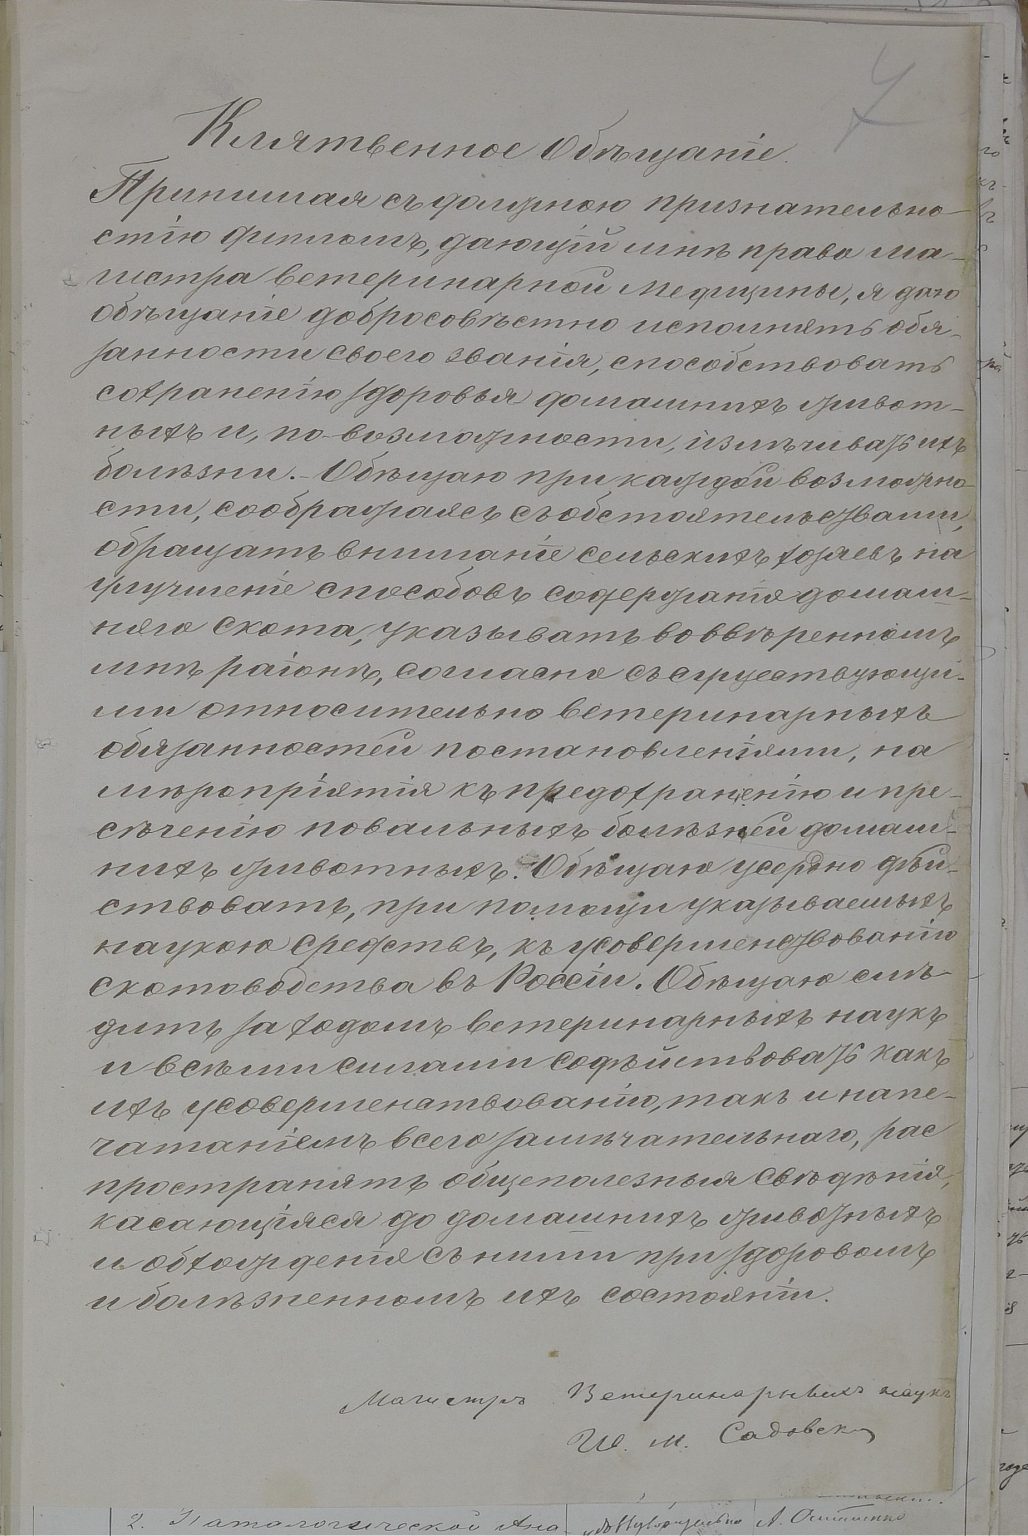 7
Клятвенное Обѣщаніе.
Принимая съ должною признательно-
стію дипломъ, дающій мнѣ право ма-
гистра ветеринарной медицины, я даю
обѣщаніе добросовѣстно исполнять обя-
занности своего званія, способствовать
сохраненію здоровья домашнихъ живот-
ныхъ и, по возможности, излѣчивать ихъ
болѣзни. - Обѣщаю при каждой возможно-
сти, соображаясь съ обстоятельствами,
обращать вниманіе сельскихъ хозяевъ на
улучшеніе способовъ содержанія домаш-
няго скота, указывать во ввѣренномъ
мнѣ районѣ, согласно съ существующи-
ми относительно ветеринарныхъ
обязанностей постановленіями, на
мѣропріятія къ предохраненію и пре-
сѣченію повальныхъ болѣзней домаш-
нихъ животныхъ. Обѣщаю усердно дѣй-
ствовать, при помощи указываемыхъ
наукою средствъ, къ усовершенствованію
скотоводства въ Россіи. Обѣщаю слѣ-
дить за ходомъ ветеринарныхъ наукъ
и всѣми силами содѣйствовать какъ
ихъ усовершенствованію, такъ и напе-
чатаніемъ всего замѣчательнаго, рас
пространять общеполезныя свѣдѣнія,
касающіяся до домашнихъ животныхъ
и обхожденія съ ними при здоровомъ
и болѣзненномъ ихъ состояніи.
Магистръ Ветеринарныхъ наукъ
И. М. Садовск
2. Патологической Ана-